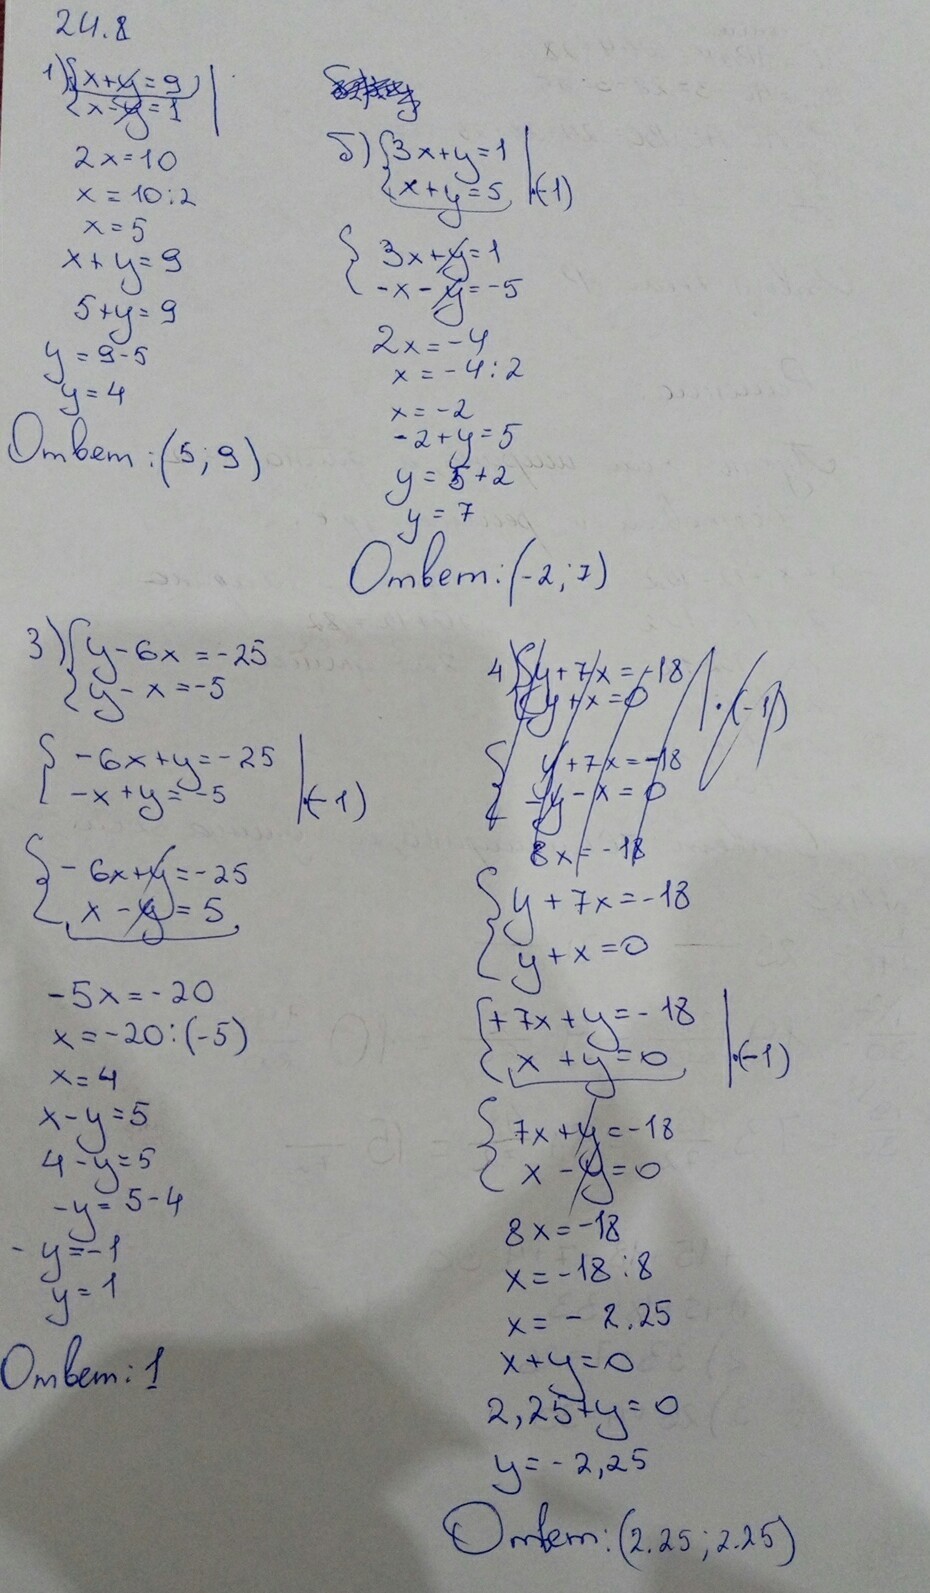 24.8
1) {x+y=9
{x-y=1
2x=10
x=10:2
x=5
x+y=9
5+y=9
y=9-5
y=4
Ответ:(5;9)
б) {3x+y=1
{x+y=5 |·(-1)
{3x+y=1
-x-y=-5
2x=-4
x=-4:2
x=-2
-2+y=5
y=5+2
y=7
Ответ:(-2;7)
3) {y-6x=-25
{y-x=-5
{-6x+y=-25
-x+y=-5 |·(-1)
{-6x+y=-25
x-y=5
-5x=-20
x=-20:(-5)
x=4
x-y=5
4-y=5
-y=5-4
-y=-1
y=1
Ответ:1
4) {y+7x=-18
{y+x=0 |·(-1)
{y+7x=-18
-y-x=0
8x=-18
{y+7x=-18
y+x=0
{+7x+y=-18
x+y=0 |·(-1)
{7x+y=-18
x-y=0
8x=-18
x=-18:8
x=-2.25
x+y=0
2,25+y=0
y=-2,25
Ответ:(2.25;2.25)